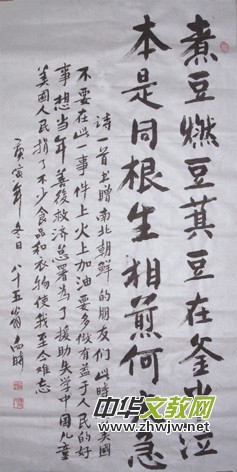 煮豆燃豆萁豆在釜中泣
本是同根生相煎何太急
诗一首书赠南北朝鲜的朋友们此时美国
不要在此一事件上火上加油要多做有益于人民的好
事想当年善后救济总署为了援助失学中国儿童
美国人民捐了不少食品和衣物使我至今难忘
庚寅年冬日 八十五翁
中华文教网
www.zhwjw.com